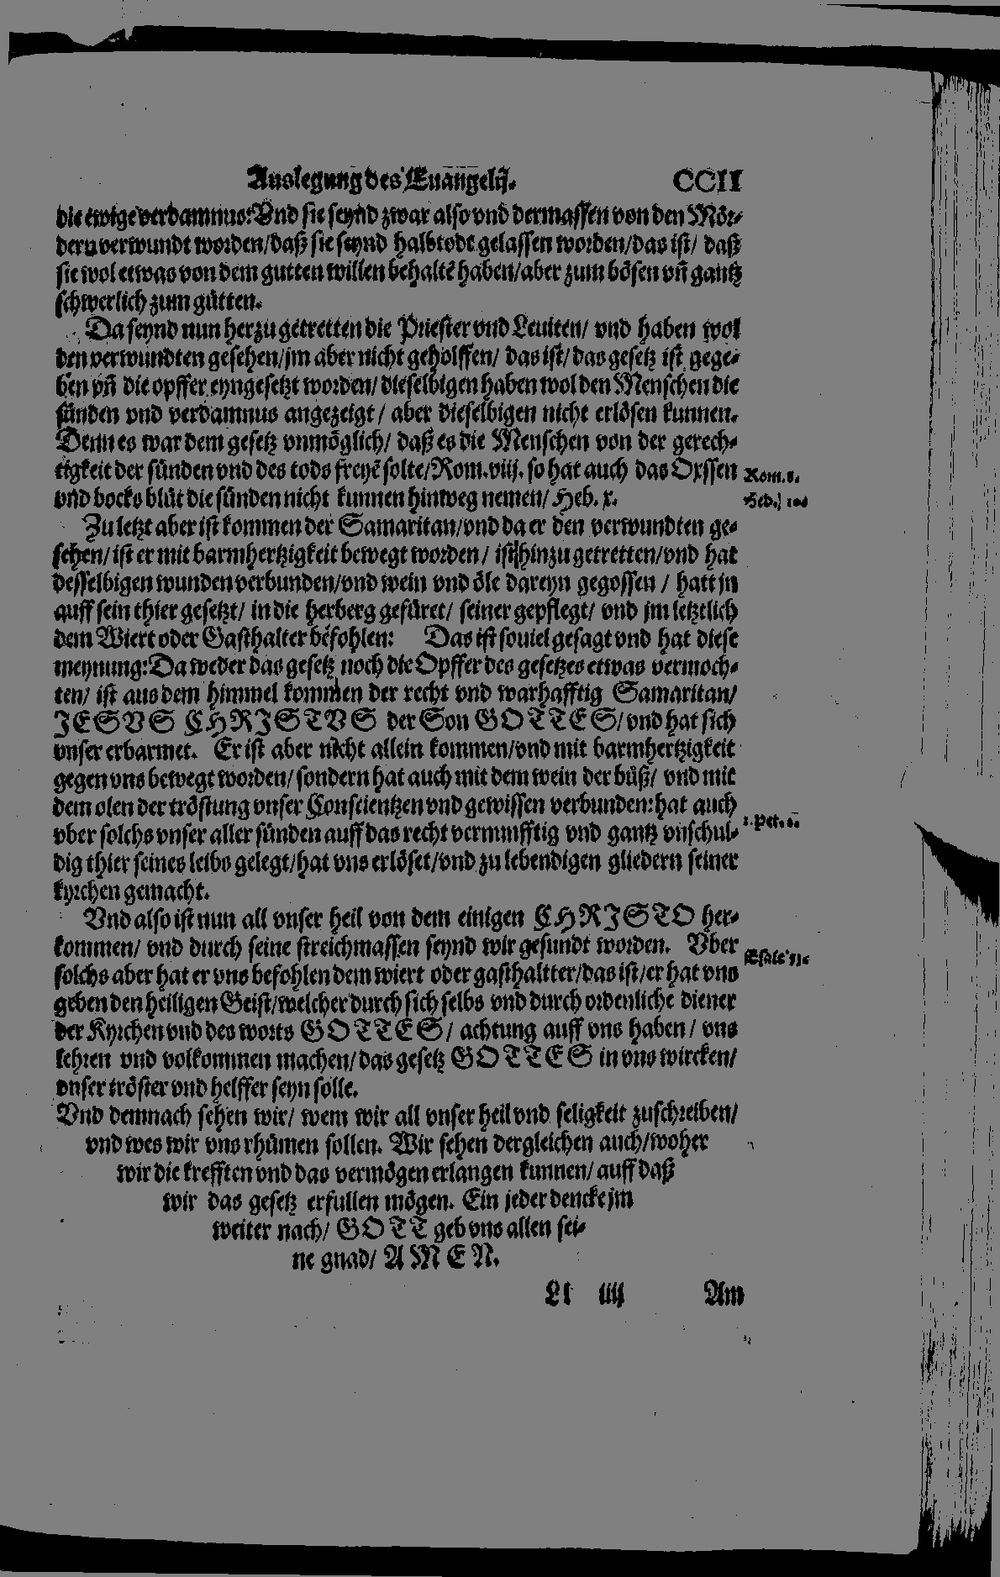 Auslegung des Euangelij. CCII
die ewige verdamnus: Vnd sie seynd zwar also vnd dermassen von den Mör-
dern verwundt worden/ daß sie seynd halbtodt gelassen worden/ das ist/ daß
sie wol etwas von dem gutten willen behaltē haben/ aber zum bösen vn̄ gantz
schwerlich zum gůtten.
Da seynd nun herzu getretten die Priester vnd Leuiten/ vnd haben wol
den verwundten gesehen/ jm aber nicht geholffen/ das ist/ das gesetz ist gege-
ben vn̄ die opffer eyngesetzt worden/ dieselbigen haben wol den Menschen die
sünden vnd verdamnus angezeigt/ aber dieselbigen nicht erlösen kunnen.
Denn es war dem gesetz vnmöglich/ daß es die Menschen von der gerech-
tigkeit der sünden vnd des tods freyē solte/ Rom. viij. so hat auch das Oxssen
Rom. 8.
vnd bocks blůt die sünden nicht kunnen hinweg nemen/ Heb. x.
Heb. 10
Zu letzt aber ist kommen der Samaritan/ vnd da er den verwundten ge-
sehen/ ist er mit barmhertzigkeit bewegt worden/ ist hinzu getretten/ vnd hat
desselbigen wunden verbunden/ vnd wein vnd öle dareyn gegossen/ hatt jn
auff sein thier gesetzt/ in die herberg gefüret/ seiner gepflegt/ vnd jm letztlich
dem Wiert oder Gasthalter befohlen: Das ist souiel gesagt vnd hat diese
meynung: Da weder das gesetz noch die Opffer des gesetzes etwas vermoch-
ten/ ist aus dem himmel kommen der recht vnd warhafftig Samaritan/
JESVS CHRISTVS der Son GOTTES/ vnd hat sich
vnser erbarmet. Er ist aber nicht allein kommen/ vnd mit barmhertzigkeit
gegen vns bewegt worden/ sondern hat auch mit dem wein der bůß/ vnd mit
dem olen der tröstung vnser Conscientzen vnd gewissen verbunden: hat auch
1. Pet. 2.
vber solchs vnser aller sünden auff das recht vernunfftig vnd gantz vnschul-
dig thier seines leibs gelegt/ hat vns erlöset/ vnd zu lebendigen gliedern seiner
kyrchen gemacht.
Vnd also ist nun all vnser heil von dem einigen CHRISTO her-
kommen/ vnd durch seine streichmassen seynd wir gesundt worden. Vber
Esaie 53.
solchs aber hat er vns befohlen dem wiert oder gasthaltter/ das ist/ er hat vns
geben den heiligen Geist/ welcher durch sich selbs vnd durch ordenliche diener
der Kyrchen vnd des worts GOTTES/ achtung auff vns haben/ vns
lehren vnd volkommen machen/ das gesetz GOTTES in vns wircken/
vnser tröster vnd helffer seyn solle.
Vnd demnach sehen wir/ wem wir all vnser heil vnd seligkeit zuschreiben/
vnd wes wir vns rhümen sollen. Wir sehen dergleichen auch/ woher
wir die krefften vnd das vermögen erlangen kunnen/ auff daß
wir das gesetz erfullen mögen. Ein jeder dencke jm
weiter nach/ GOTT geb vns allen sei-
ne gnad/ AMEN.
Ll iiij Am